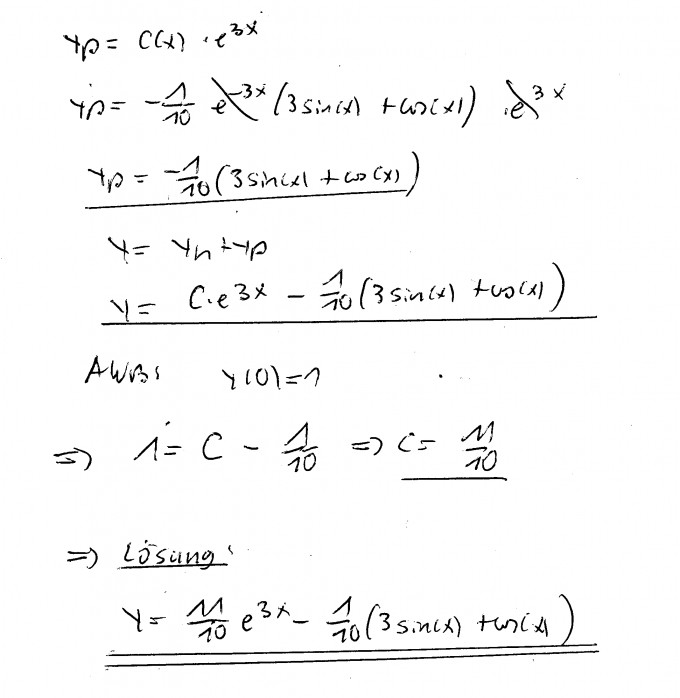 yp = C(x) · e^3x
yp = -1/10 e^-3x (3 sin(x) + cos(x)) · e^3x
yp = -1/10 (3 sin(x) + cos(x))
y = yh + yp
y = C·e^3x - 1/10 (3 sin(x) + cos(x))
AWB: y(0)=1
=> 1 = C - 1/10 => C = 11/10
=> Lösung:
y = 11/10 e^3x - 1/10 (3 sin(x) + cos(x))